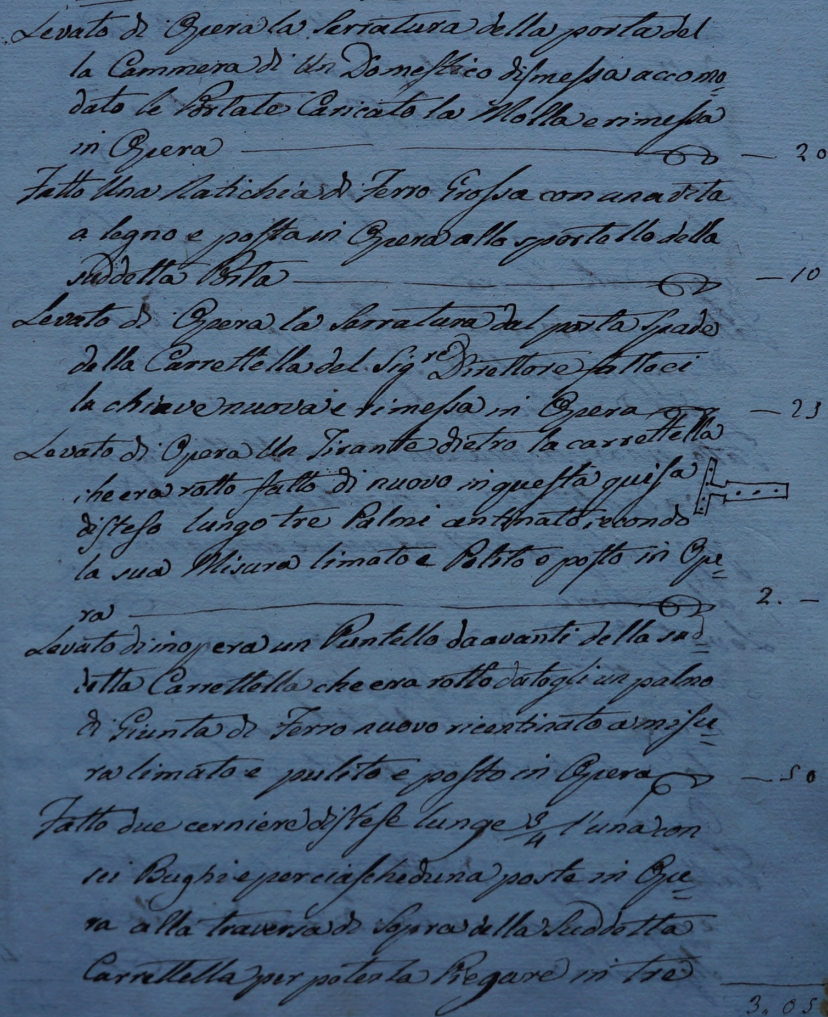 Levato di Opera la Serratura della porta del
la Cammera di Un Domestico dismessa accomo=
dato le Portate Caricato la Molla e rimessa
in Opera — 20
Fatto Una Natichia di Ferro Grossa con una vita
a legno e posta in Opera allo sportello della
suddetta Porta — 10
Levato di Opera la Serratura dal porta Spade
della Carrettella del Sigre Direttore fattoci
la chiave nuova e rimessa in Opera — 25
Levato di Opera Un Tirante dietro la carrettella
che era rotto fatto di nuovo in questa guisa
disteso lungo tre Palmi centinato secondo
la sua Misura limato e Polito e posto in Ope=
ra 2. —
Levato di inopera un Puntello da avanti della sud=
detta Carrettella che era rotto datogli un palmo
di Giunta di Ferro nuovo ricentinato a misu=
ra limato e pulito e posto in Opera — 50
Fatto due cerniere distese lunge 3/4 l'una con
sei Bughi e per ciascheduna poste in Ope=
ra alla traversa di Sopra della Suddetta
Carrettella per poterla Piegare in tre
3. 05